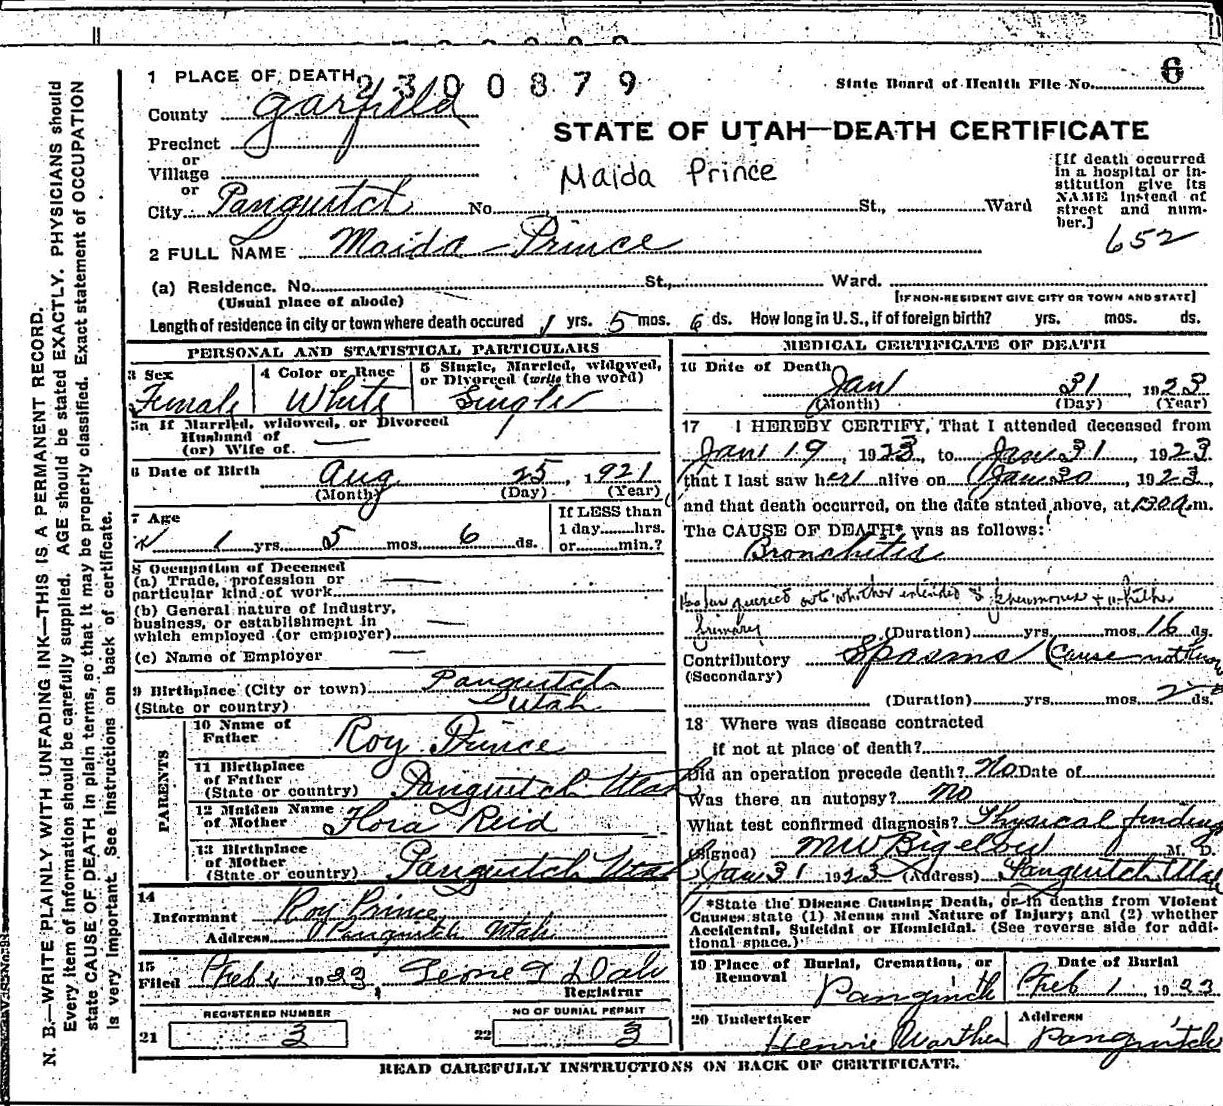 2300879
1 PLACE OF DEATH
State Board of Health File No. 6
County Garfield
STATE OF UTAH—DEATH CERTIFICATE
Precinct
or
Village
or
Maida Prince
[If death occurred in a hospital or institution give its NAME instead of street and number.]
City Panguitch No. St., Ward
652
2 FULL NAME Maida Prince
(a) Residence. No. St., Ward.
(Usual place of abode)
[IF NON-RESIDENT GIVE CITY OR TOWN AND STATE]
Length of residence in city or town where death occured 1 yrs. 5 mos. 6 ds. How long in U.S., if of foreign birth? yrs. mos. ds.
PERSONAL AND STATISTICAL PARTICULARS
3 Sex
Female
4 Color or Race
White
5 Single, Married, widowed, or Divorced (write the word)
Single
5a If Married, widowed, or Divorced
Husband of
(or) Wife of.
6 Date of Birth Aug 25, 1921
(Month) (Day) (Year)
7 Age
1 yrs. 5 mos. 6 ds.
If LESS than
1 day hrs.
or min.?
8 Occupation of Deceased
(a) Trade, profession or
particular kind of work
(b) General nature of Industry,
business, or establishment in
which employed (or employer)
(c) Name of Employer
9 Birthplace (City or town) Panguitch
(State or country) Utah
PARENTS
10 Name of
Father Roy Prince
11 Birthplace
of Father
(State or country) Panguitch Utah
12 Maiden Name
of Mother Flora Reid
13 Birthplace
of Mother
(State or country) Panguitch Utah
14
Informant Roy Prince
Address Panguitch Utah
15
Filed Feb 4 1923
Registrar
REGISTERED NUMBER
21 3
NO OF BURIAL PERMIT
22 3
MEDICAL CERTIFICATE OF DEATH
16 Date of Death
Jan 31, 1923
(Month) (Day) (Year)
17 I HEREBY CERTIFY, That I attended deceased from
Jan 19, 1923, to Jan 31, 1923
that I last saw her alive on Jan 30, 1923,
and that death occurred, on the date stated above, at 130 a.m.
The CAUSE OF DEATH* was as follows:
Bronchitis
queried whether extended to pneumonia
primary
(Duration) yrs. mos. 16 ds.
Contributory Spasms (Cause not known
(Secondary)
(Duration) yrs. mos. 2 ds.
18 Where was disease contracted
if not at place of death?
Did an operation precede death? No Date of
Was there an autopsy? no
What test confirmed diagnosis? Physical findings
(Signed) MW Bigelow M. D.
Jan 31 1923 (Address) Panguitch Utah
*State the Disease Causing Death, or in deaths from Violent
Causes state (1) Means and Nature of Injury; and (2) whether
Accidental, Suicidal or Homicidal. (See reverse side for addi-
tional space.)
19 Place of Burial, Cremation, or
Removal
Panguitch
Date of Burial
Feb 1, 1923
20 Undertaker
Address
Panguitch
READ CAREFULLY INSTRUCTIONS ON BACK OF CERTIFICATE.
N. B.—WRITE PLAINLY WITH UNFADING INK—THIS IS A PERMANENT RECORD.
Every item of information should be carefully supplied. AGE should be stated EXACTLY. PHYSICIANS should
state CAUSE OF DEATH in plain terms, so that it may be properly classified. Exact statement of OCCUPATION
is very important. See instructions on back of certificate.